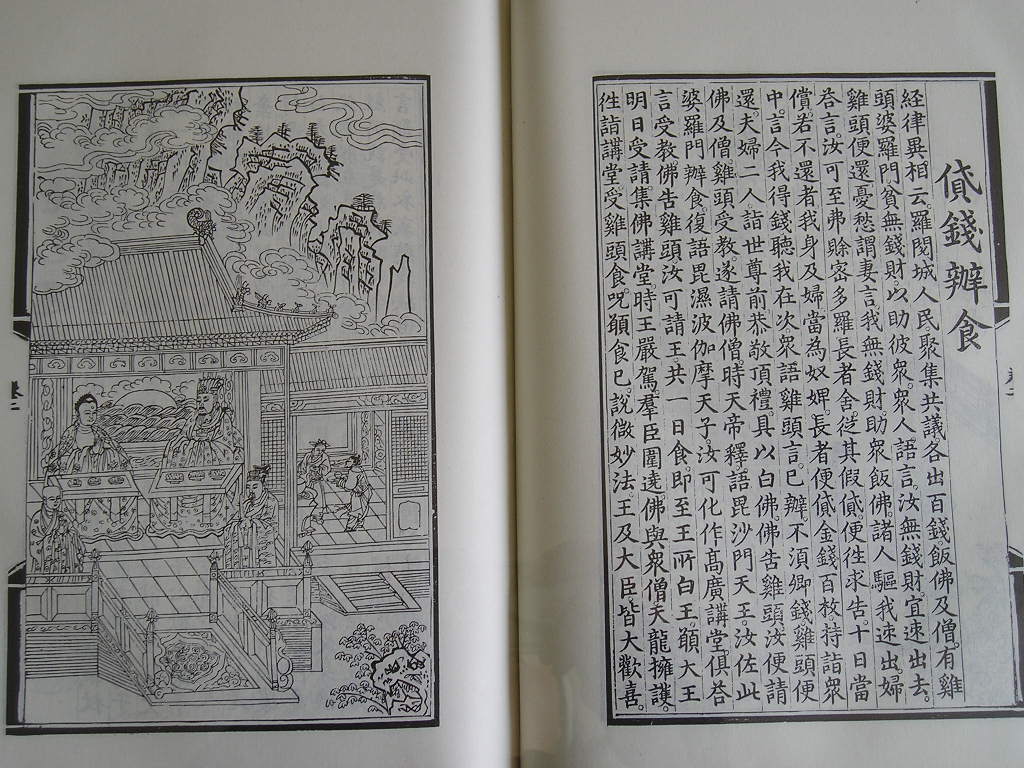 貸錢辦食
經律異相云羅閱城人民聚集共議各出百錢飯佛及僧有雞
頭婆羅門貧無錢財以助彼眾眾人語言汝無錢財宜速出去
雞頭便還憂愁謂妻言我無錢財助眾飯佛諸人驅我速出婦
荅言汝可至弗賒密多羅長者舍從其假貸便徃求告十日當
償若不還者我身及婦當為奴婢長者便貸金錢百枚持詣眾
中言今我得錢聽我在次眾語雞頭言已辦不須卿錢雞頭便
還夫婦二人詣世尊前恭敬頂禮具以白佛佛告雞頭汝便請
佛及僧雞頭受教遂請佛僧時天帝釋語毘沙門天王汝佐此
婆羅門辦食復語毘濕波伽摩天子汝可化作高廣講堂俱荅
言受教佛告雞頭汝可請王共一日食即至王所白王願大王
明日受請集佛講堂時王嚴駕羣臣圍遶佛與眾僧天龍擁護
徃詣講堂受雞頭食呪願食已說微妙法王及大臣皆大歡喜